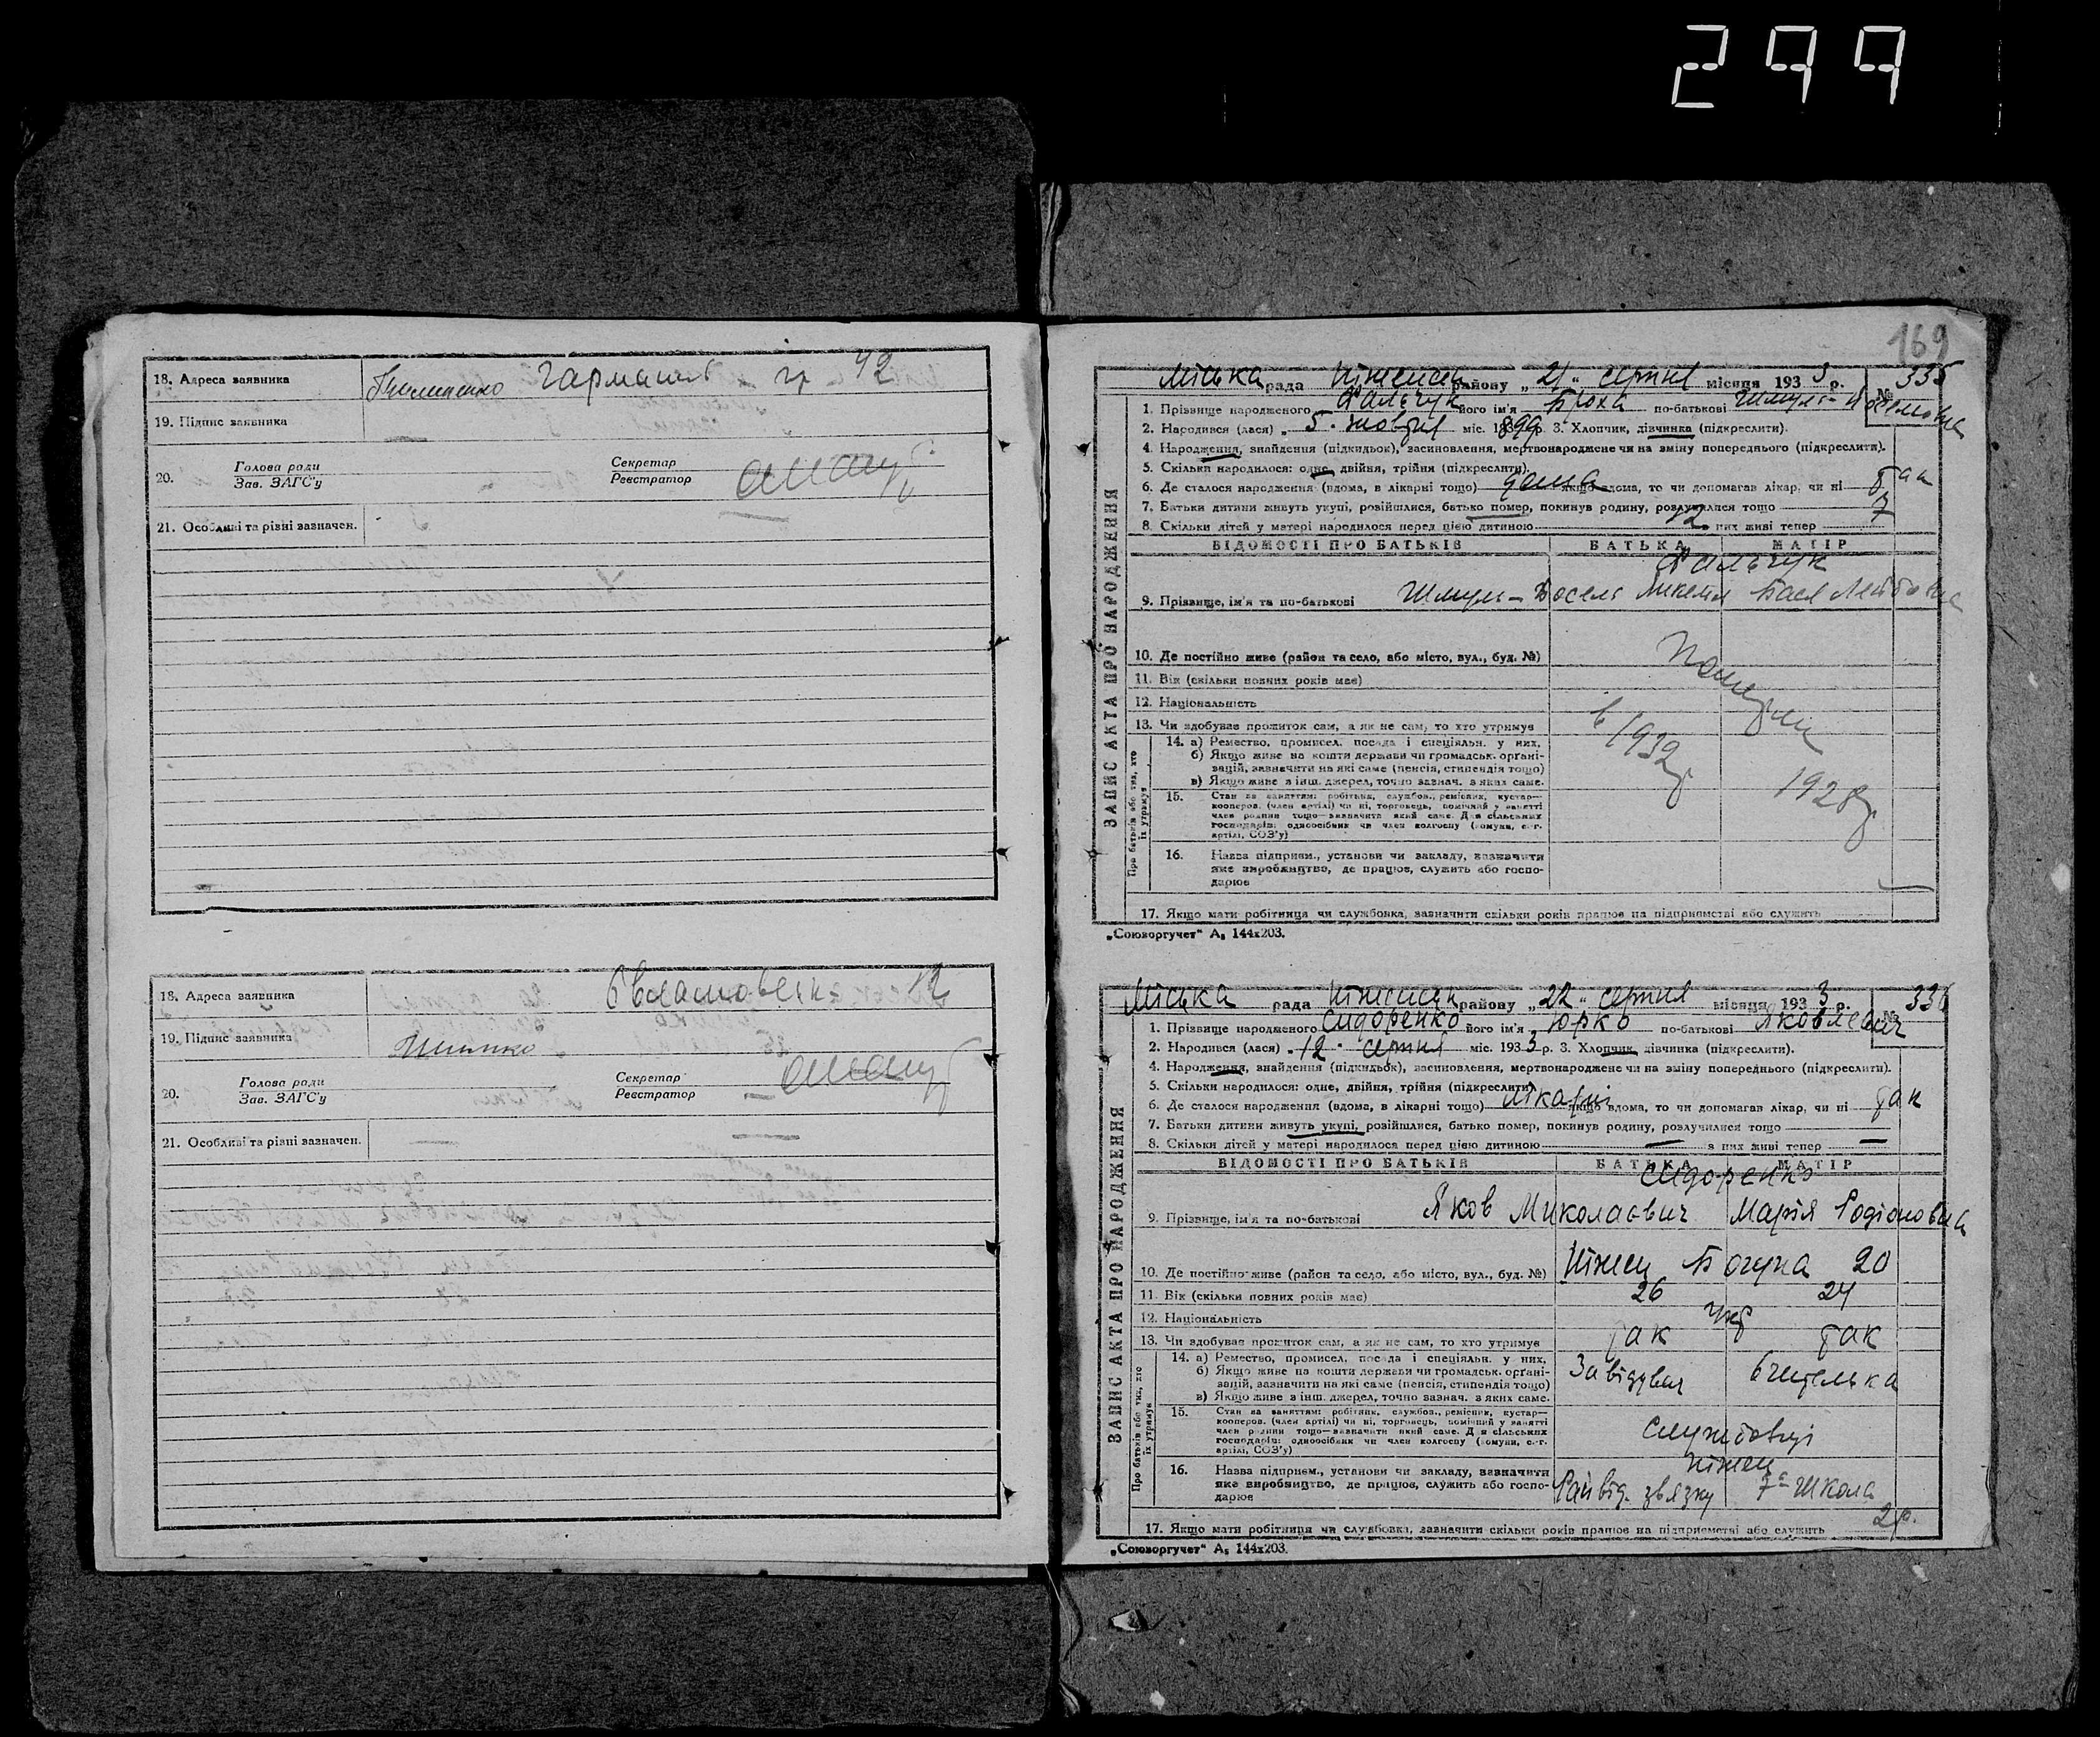 299
18. Адреса заявника
42
19. Підпис заявника
20. Голова ради
Зав. ЗАГС'у
Секретар
Реєстратор
21. Особливі та різні зазначен.
18. Адреса заявника
12
19. Підпис заявника
20. Голова ради
Зав. ЗАГС'у
Секретар
Реєстратор
21. Особливі та різні зазначен.
169
ЗАПИС АКТА ПРО НАРОДЖЕННЯ
Міська рада Ніженськ району „21" серпня місяця 1933 р. № 335
1. Прізвище народженого Фальчук його ім'я Броха по-батькові Шмуль-Иоселевна
2. Народився (лася) „5" жовтня міс. 1899 р. 3. Хлопчик, дівчинка (підкреслити).
4. Народження, знайдення (підкидьок), засиновлення, мертвонароджене чи на зміну попереднього (підкреслити).
5. Скільки народилося: одне, двійня, трійня (підкреслити).
6. Де сталося народження (вдома, в лікарні тощо) дома якщо вдома, то чи допомагав лікар, чи ні так
7. Батьки дитини живуть укупі, розійшлися, батько помер, покинув родину, розлучилися тощо
8. Скільки дітей у матері народилося перед цією дитиною 12 з них живі тепер 7
ВІДОМОСТІ ПРО БАТЬКІВ БАТЬКА МАТІР
Фальчук
9. Прізвище, ім'я та по-батькові Шмуль-Иосель Бася Лейбовна
10. Де постійно живе (район та село, або місто, вул., буд. №)
11. Вік (скільки повних років має)
12. Національність
13. Чи здобуває прожиток сам, а як не сам, то хто утримує
Про батьків або тих, хто їх утримує
14. а) Ремество, промисел, посада і спеціяльн. у них.
б) Якщо живе на кошти держави чи громадськ. органі-
зацій, зазначити на які саме (пенсія, стипендія тощо)
в) Якщо живе з інш. джерел, точно зазнач. з яких саме.
15. Стан за заняттям: робітник, службов., ремісник, кустар—
кооперов. (член артілі) чи ні, торговець, помічний у занятті
член родини тощо—зазначити який саме. Для сільських
господарів: одноосібник чи член колгоспу (комуни, с.-г.
артілі, СОЗ'у)
16. Назва підприєм., установи чи закладу, зазначити
яке виробництво, де працює, служить або госпо-
дарює
Померли
в 1932р
1928р
17. Якщо мати робітниця чи службовка, зазначити скільки років працює на підприємстві або служить
„Союзоргучет" А₅ 144x203.
ЗАПИС АКТА ПРО НАРОДЖЕННЯ
Міська рада Ніженськ району „22" серпня місяця 1933 р. № 336
1. Прізвище народженого Сидоренко його ім'я Юрко по-батькові Яковлевич
2. Народився (лася) „12" серпня міс. 1933 р. 3. Хлопчик, дівчинка (підкреслити).
4. Народження, знайдення (підкидьок), засиновлення, мертвонароджене чи на зміну попереднього (підкреслити).
5. Скільки народилося: одне, двійня, трійня (підкреслити)
6. Де сталося народження (вдома, в лікарні тощо) лікарні якщо вдома, то чи допомагав лікар, чи ні так
7. Батьки дитини живуть укупі, розійшлися, батько помер, покинув родину, розлучилися тощо
8. Скільки дітей у матері народилося перед цією дитиною — з них живі тепер —
ВІДОМОСТІ ПРО БАТЬКІВ БАТЬКА МАТІР
Сидоренко
9. Прізвище, ім'я та по-батькові Яков Миколаович Марія Родіоновна
10. Де постійно живе (район та село, або місто, вул., буд. №) Ніжен Богуна 20
11. Вік (скільки повних років має) 26 24
12. Національність укр
13. Чи здобуває прожиток сам, а як не сам, то хто утримує так так
Про батьків або тих, хто їх утримує
14. а) Ремество, промисел, посада і спеціяльн. у них.
б) Якщо живе на кошти держави чи громадськ. органі-
зацій, зазначити на які саме (пенсія, стипендія тощо)
в) Якщо живе з інш. джерел, точно зазнач. з яких саме.
Завідувач вчителька
15. Стан за заняттям: робітник, службов., ремісник, кустар—
кооперов. (член артілі) чи ні, торговець, помічний у занятті
член родини тощо—зазначити який саме. Для сільських
господарів: одноосібник чи член колгоспу (комуни, с.-г.
артілі, СОЗ'у)
службовці
16. Назва підприєм., установи чи закладу, зазначити
яке виробництво, де працює, служить або госпо-
дарює
Ніжен
Райвід. звязку 7а Школа
17. Якщо мати робітниця чи службовка, зазначити скільки років працює на підприємстві або служить 2р.
„Союзоргучет" А₅ 144x203.